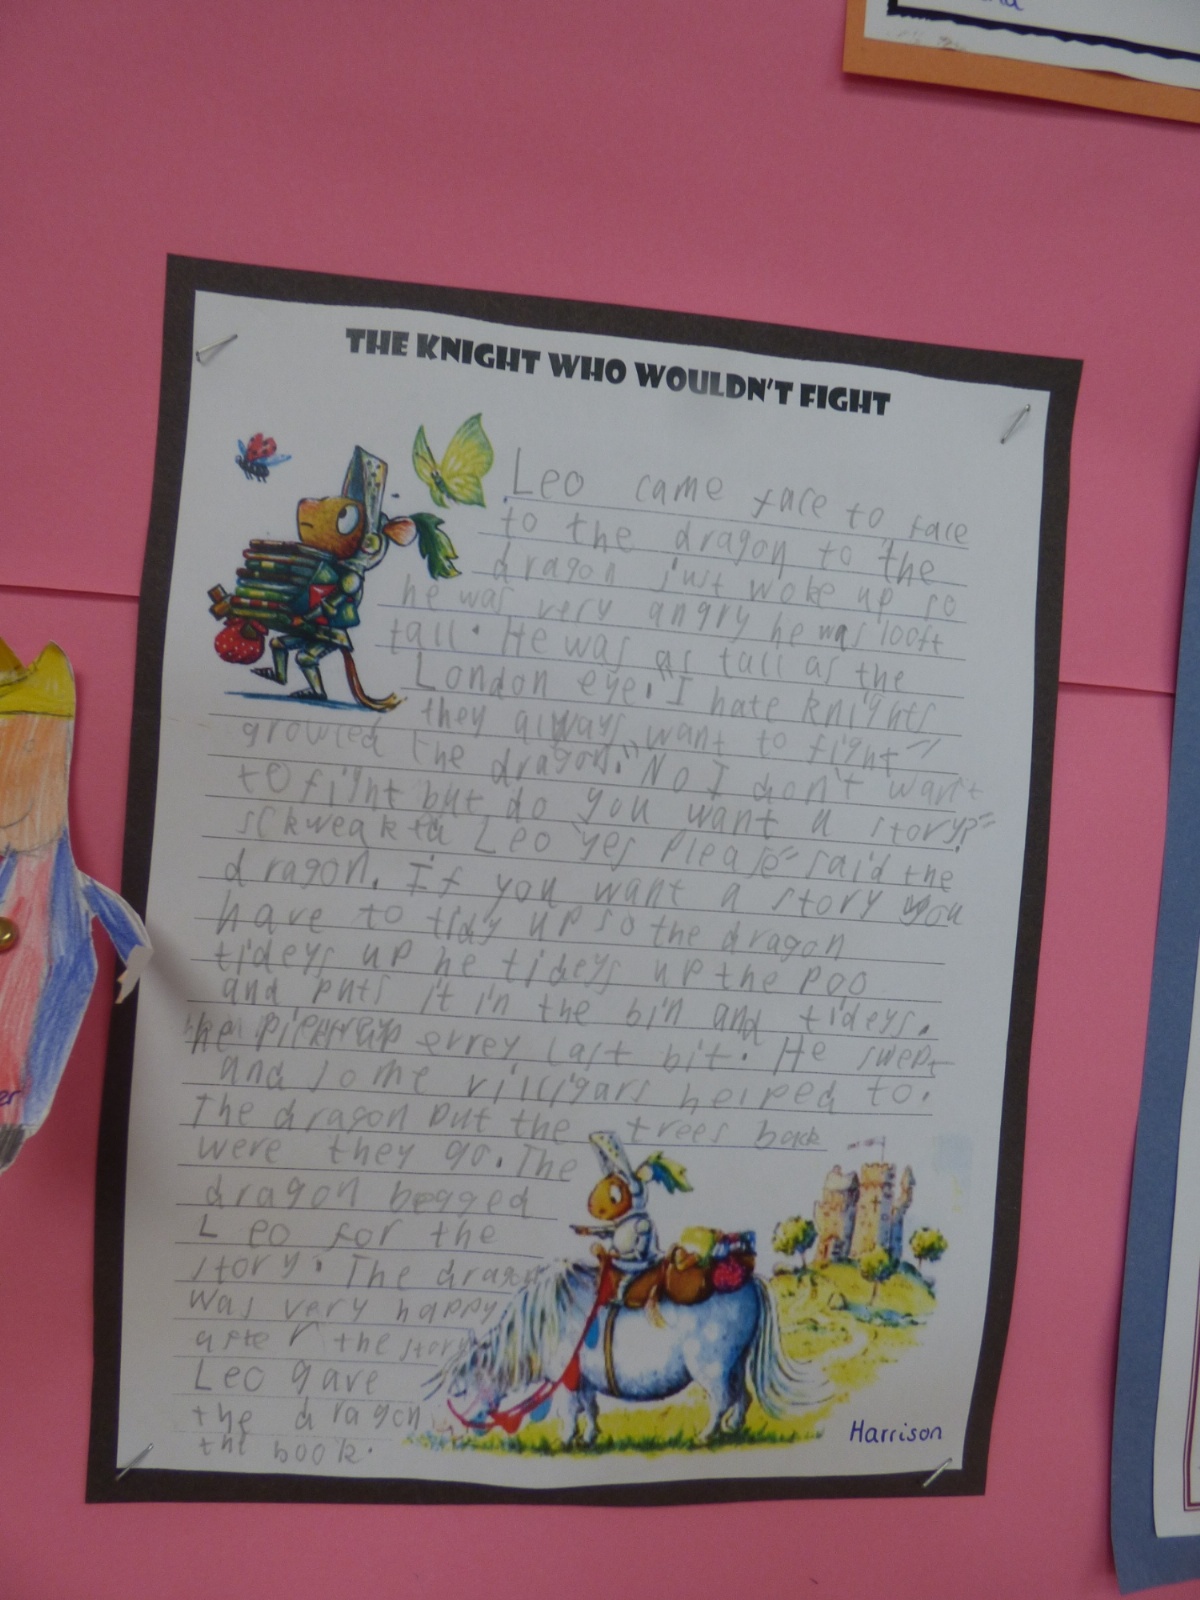 THE KNIGHT WHO WOULDN'T FIGHT
Leo came face to face
to the dragon to the
dragon just woke up so
he was very angry he was 100ft
tall. He was as tall as the
London eye. "I hate knights
they always want to fight"
growled the dragon. "No I don't want
to fight but do you want a story?"
sckweakted Leo "yes please" said the
dragon. If you want a story you
have to tidy up so the dragon
tideys up he tideys up the poo
and puts it in the bin and tideys.
he errey last bit. He swept
and some villigars helped to.
The dragon put the trees back
were they go. The
dragon begged
Leo for the
story. The dragon
was very happy
after the story
Leo gave
the dragon
the book.
Harrison